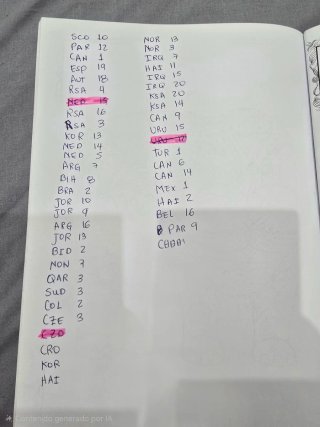 SCO 10
PAR 12
CAN 1
ESP 19
AUT 18
RSA 9
MED 15
RSA 16
RSA 3
KOR 13
MED 14
MED 5
ARG 7
BIH 8
BRA 2
JOR 10
JOR 9
ARG 16
JOR 13
BIO 2
NON 7
QAR 3
SUD 3
COL 2
CZE 3
CRO
KOR
HAI
NOR 13
NOR 3
IRQ 7
HAI 11
IRQ 15
IRQ 20
KSA 20
KSA 14
CAN 9
URU 15
URU 12
TUR 1
CAN 6
CAN 14
MEX 1
HAI 2
BEL 16
PAR 9
Contenido generado por IA